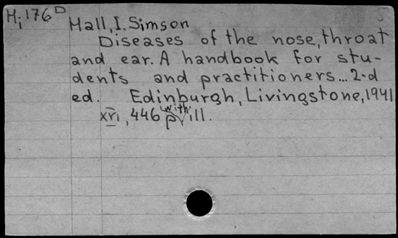 H,176 D
Hall,I.Simson
Diseases of the nose,throat
and ear. A handbook for stu-
dents and practitioners...2-d
ed. Edinburgh, Livingstone,1941
xvi,446 p. with ill.